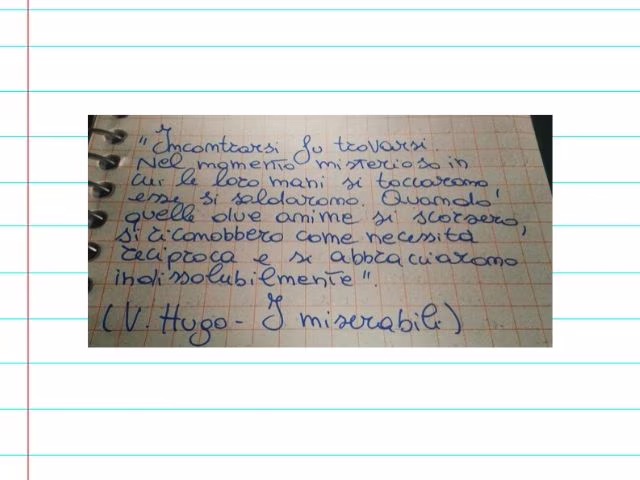 "Incontrarsi fu trovarsi.
Nel momento misterioso in
cui le loro mani si toccarono,
esse si saldarono. Quando
quelle due anime si scorsero,
si riconobbero come necessità
reciproca e si abbracciarono
indissolubilmente".
(V. Hugo - I miserabili)